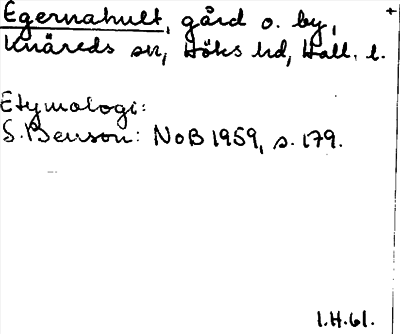 Egernahult, gård o. by, +
Knäreds sn, Höks hd, Hall. l.
Etymologi:
S. Benson: NoB 1959, s. 179.
1.H.61.